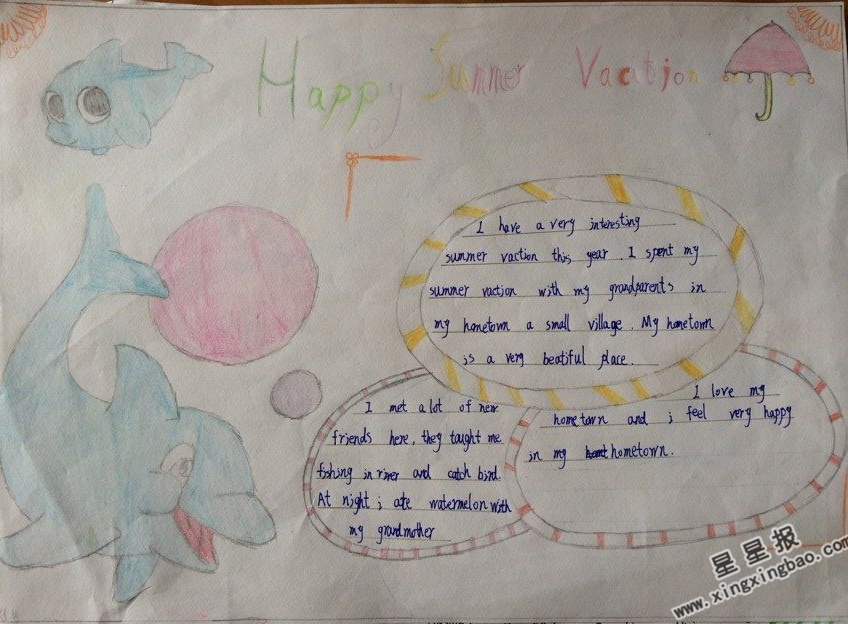 Happy Summer Vacation
I have a very interesting
summer vaction this year. I spent my
summer vaction with my grandparents in
my hometown a small village. My hometown
is a very beatiful place.
I met a lot of new
friends here, they taught me
fishing in river and catch bird.
At night i ate watermelon with
my grandmother
I love my
hometown and i feel very happy
in my hometown.
星星报
www.xingxingbao.com